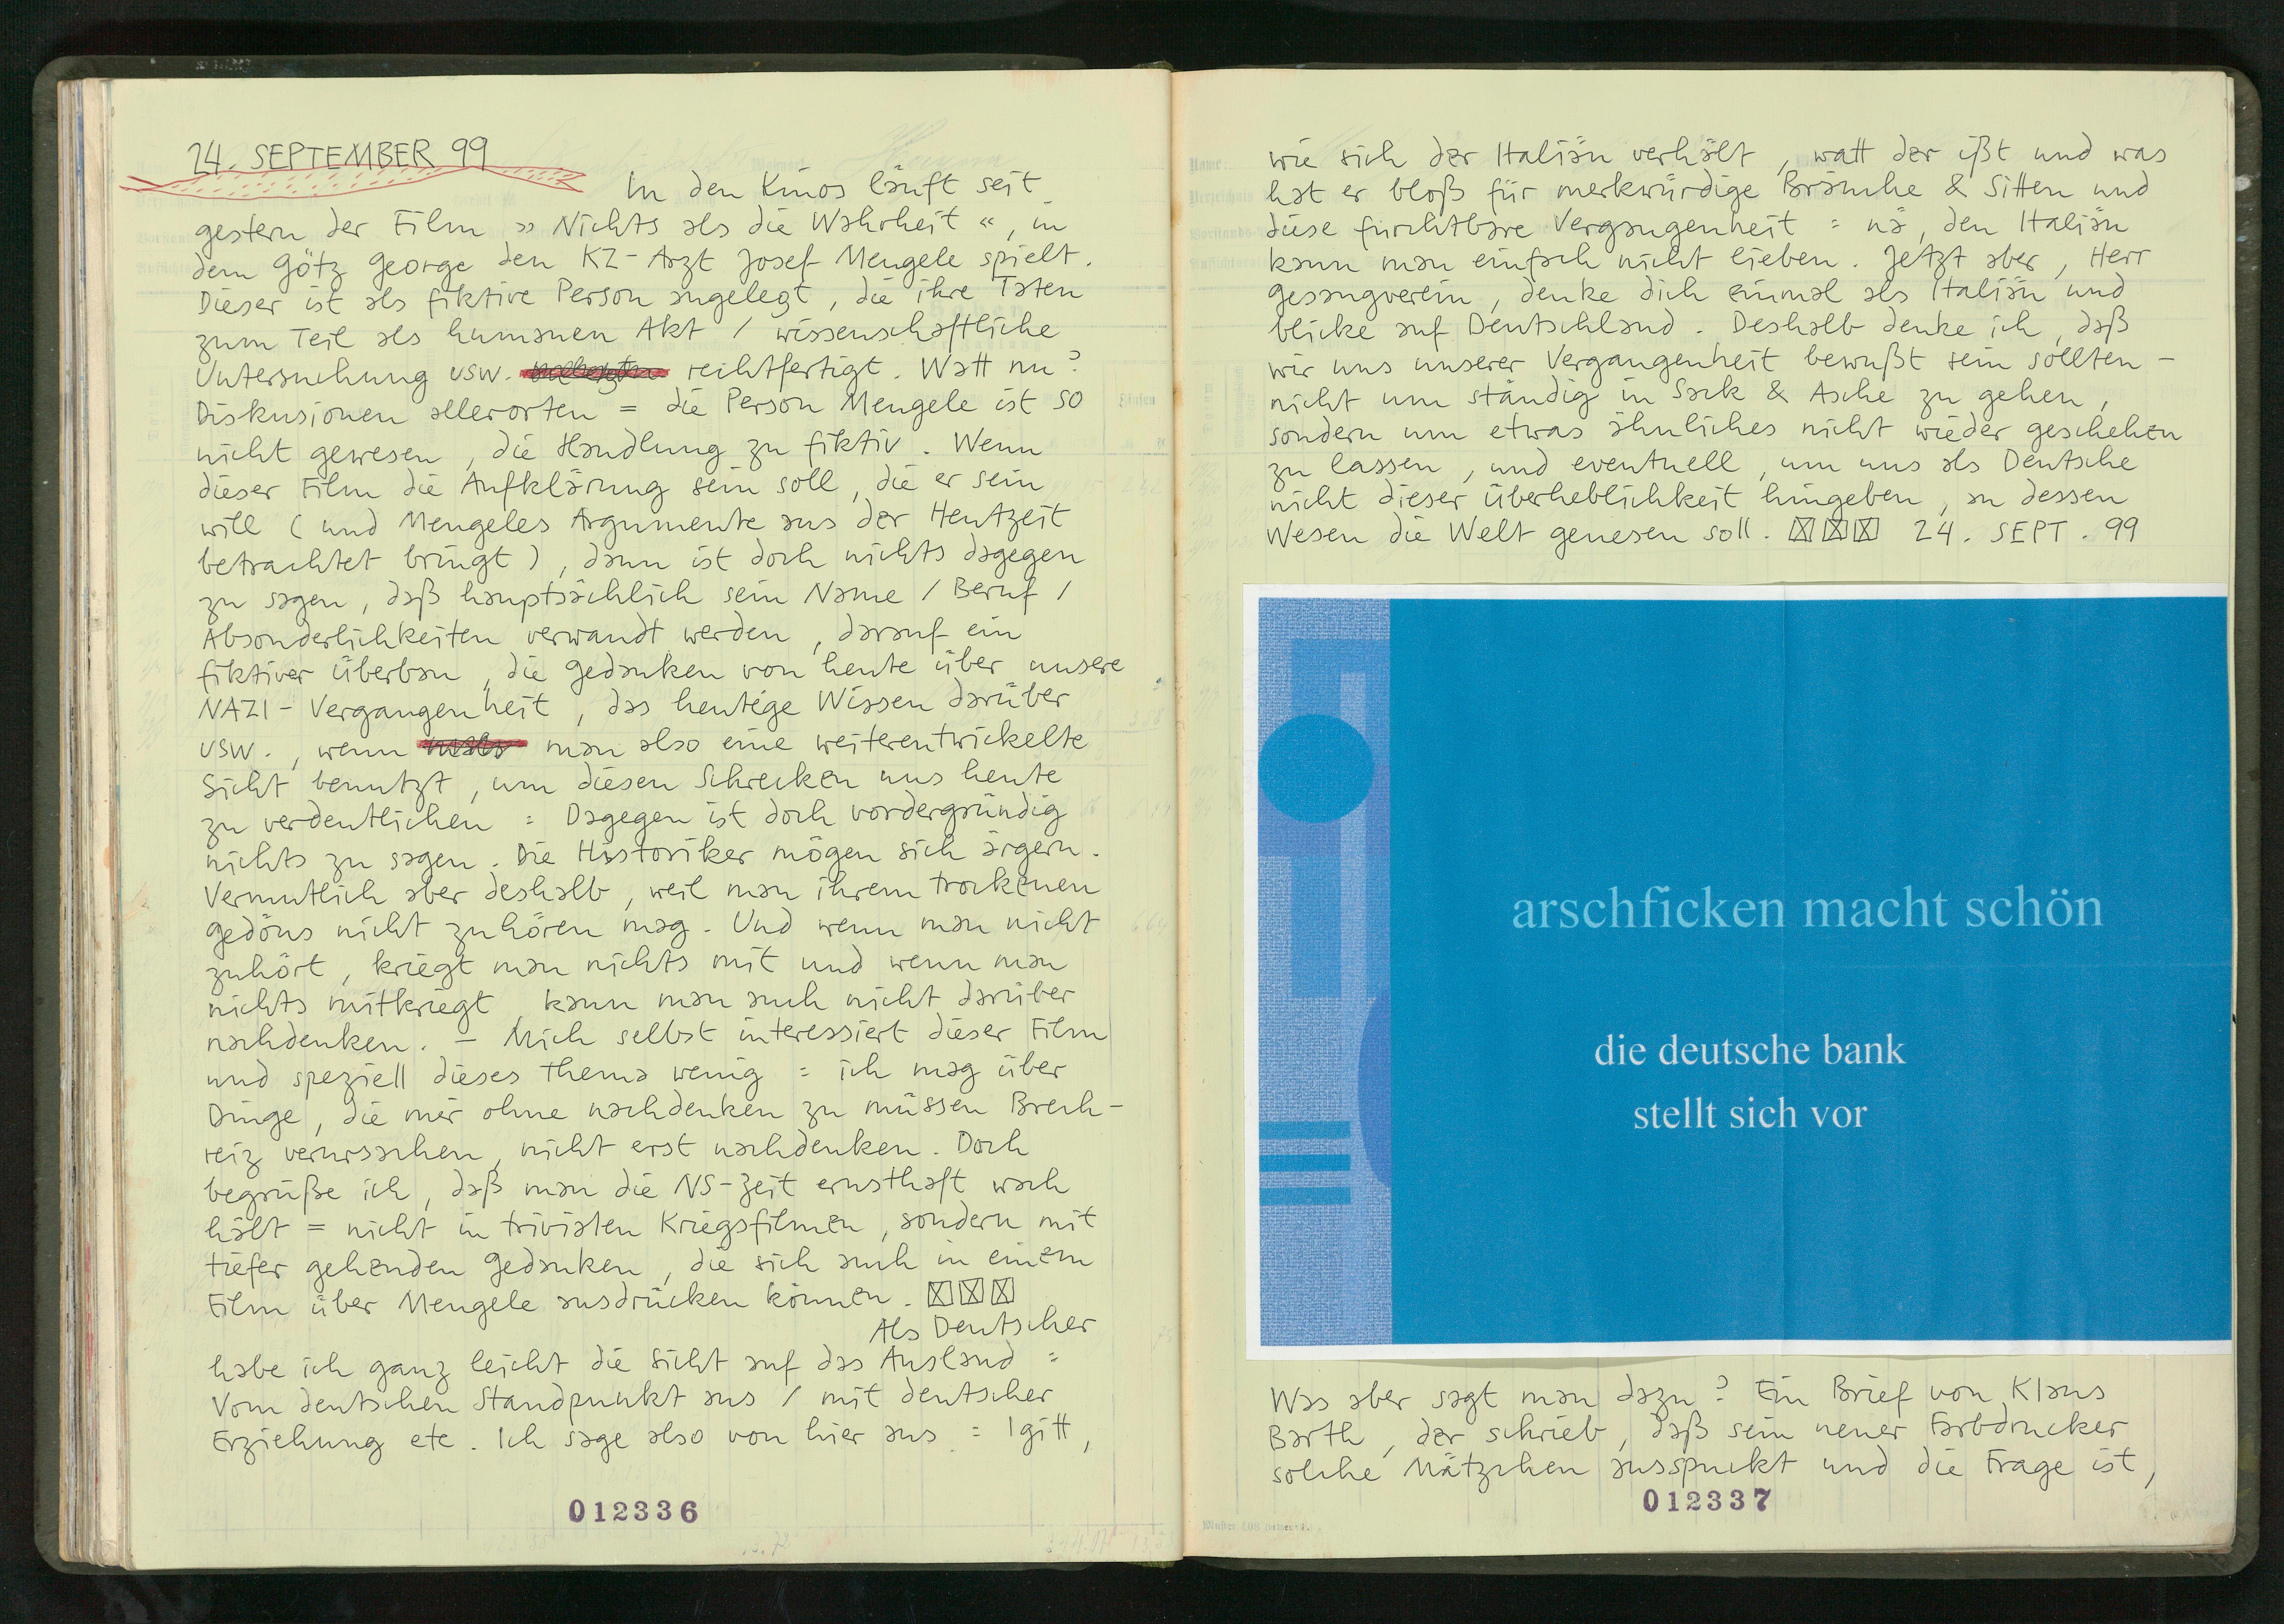 24. SEPTEMBER 99
In den Kinos läuft seit
gestern der Film » Nichts als die Wahrheit «, in
dem Götz George den KZ-Arzt Josef Mengele spielt.
Dieser ist als fiktive Person angelegt, die ihre Taten
zum Teil als humanen Akt / wissenschaftliche
Untersuchung usw. rechtfertigt. Watt nu?
Diskusionen allerorten = die Person Mengele ist so
nicht gewesen, die Handlung zu fiktiv. Wenn
dieser Film die Aufklärung sein soll, die er sein
will (und Mengeles Argumente aus der Heutzeit
betrachtet bringt), dann ist doch nichts dagegen
zu sagen, daß hauptsächlich sein Name / Beruf /
Absonderlichkeiten verwandt werden, darauf ein
fiktiver Überbau, die Gedanken von heute über unsere
NAZI-Vergangenheit, das heutige Wissen darüber
usw., wenn man also eine weiterentwickelte
Sicht benutzt, um diesen Schrecken uns heute
zu verdeutlichen = Dagegen ist doch vordergründig
nichts zu sagen. Die Historiker mögen sich ärgern.
Vermutlich aber deshalb, weil man ihrem trockenen
Gedöns nicht zuhören mag. Und wenn man nicht
zuhört, kriegt man nichts mit und wenn man
nichts mitkriegt, kann man auch nicht darüber
nachdenken. - Mich selbst interessiert dieser Film
und speziell dieses Thema wenig = ich mag über
Dinge, die mir ohne nachdenken zu müssen Brech-
reiz verursachen, nicht erst nachdenken. Doch
begrüße ich, daß man die NS-Zeit ernsthaft wach
hält = nicht in trivialen Kriegsfilmen, sondern mit
tiefer gehenden Gedanken, die sich auch in einem
Film über Mengele ausdrücken können. ☒☒☒
Als Deutscher
habe ich ganz leicht die Sicht auf das Ausland =
Vom deutschen Standpunkt aus / mit deutscher
Erziehung etc. Ich sage also von hier aus = Igitt,
012336
wie sich der Italiän verhält, watt der ißt und was
hat er bloß für merkwürdige Bräuche & Sitten und
diese furchtbare Vergangenheit = nä, den Italiän
kann man einfach nicht lieben. Jetzt aber, Herr
Gesangverein, denke dich einmal als Italiän und
blicke auf Deutschland. Deshalb denke ich, daß
wir uns unserer Vergangenheit bewußt sein sollten -
nicht um ständig in Sack & Asche zu gehen,
sondern um etwas ähnliches nicht wieder geschehen
zu lassen, und eventuell, um uns als Deutsche
nicht dieser Überheblichkeit hingeben, an dessen
Wesen die Welt genesen soll. ☒☒☒ 24. SEPT. 99
arschficken macht schön
die deutsche bank
stellt sich vor
Was aber sagt man dazu? Ein Brief von Klaus
Barth, der schrieb, daß sein neuer Farbdrucker
solche Mätzchen ausspuckt und die Frage ist,
012337